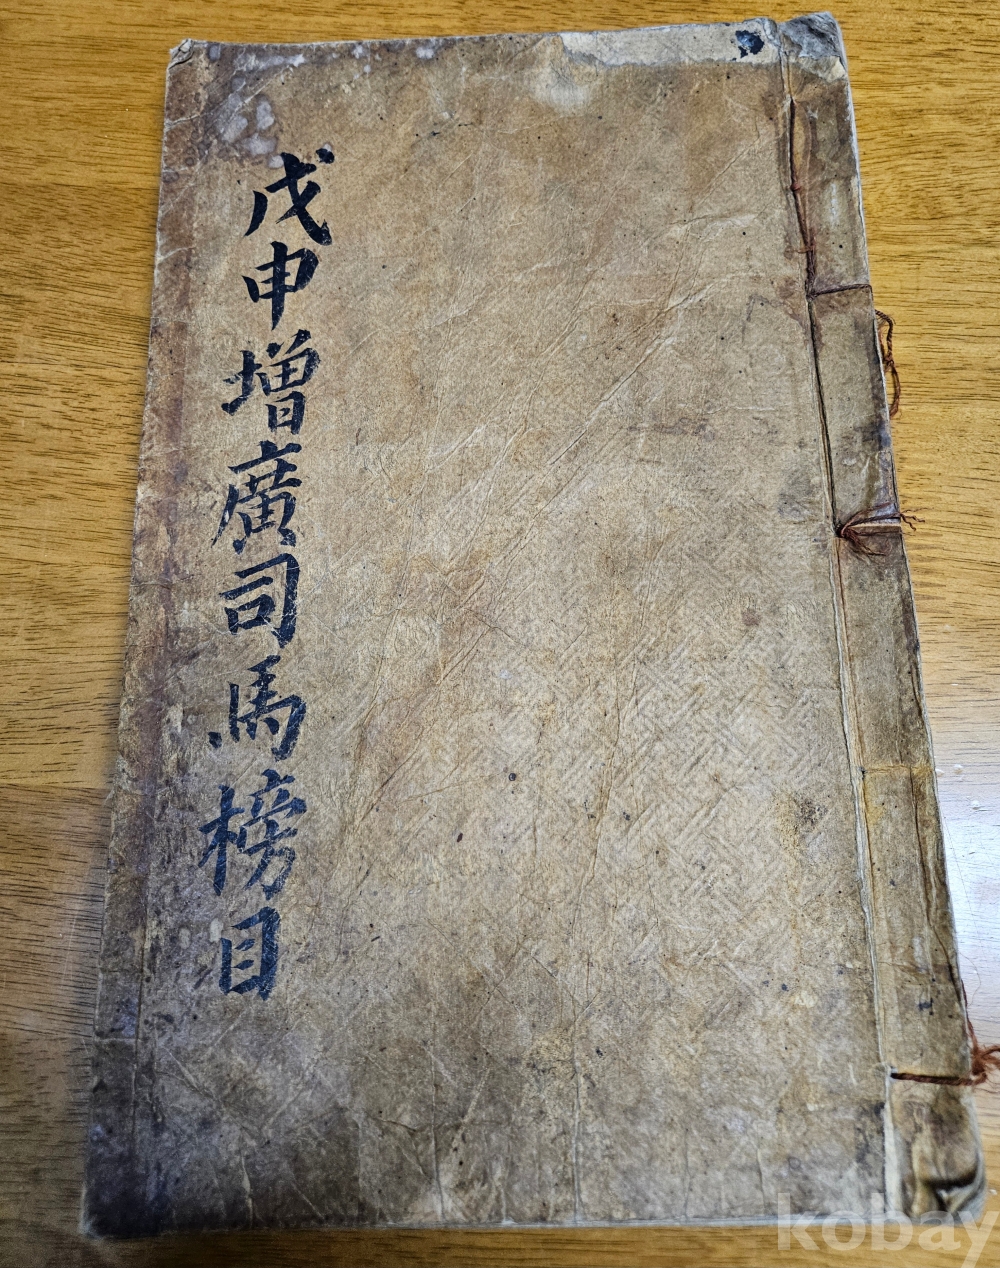 戊申增廣司馬榜目
kobay